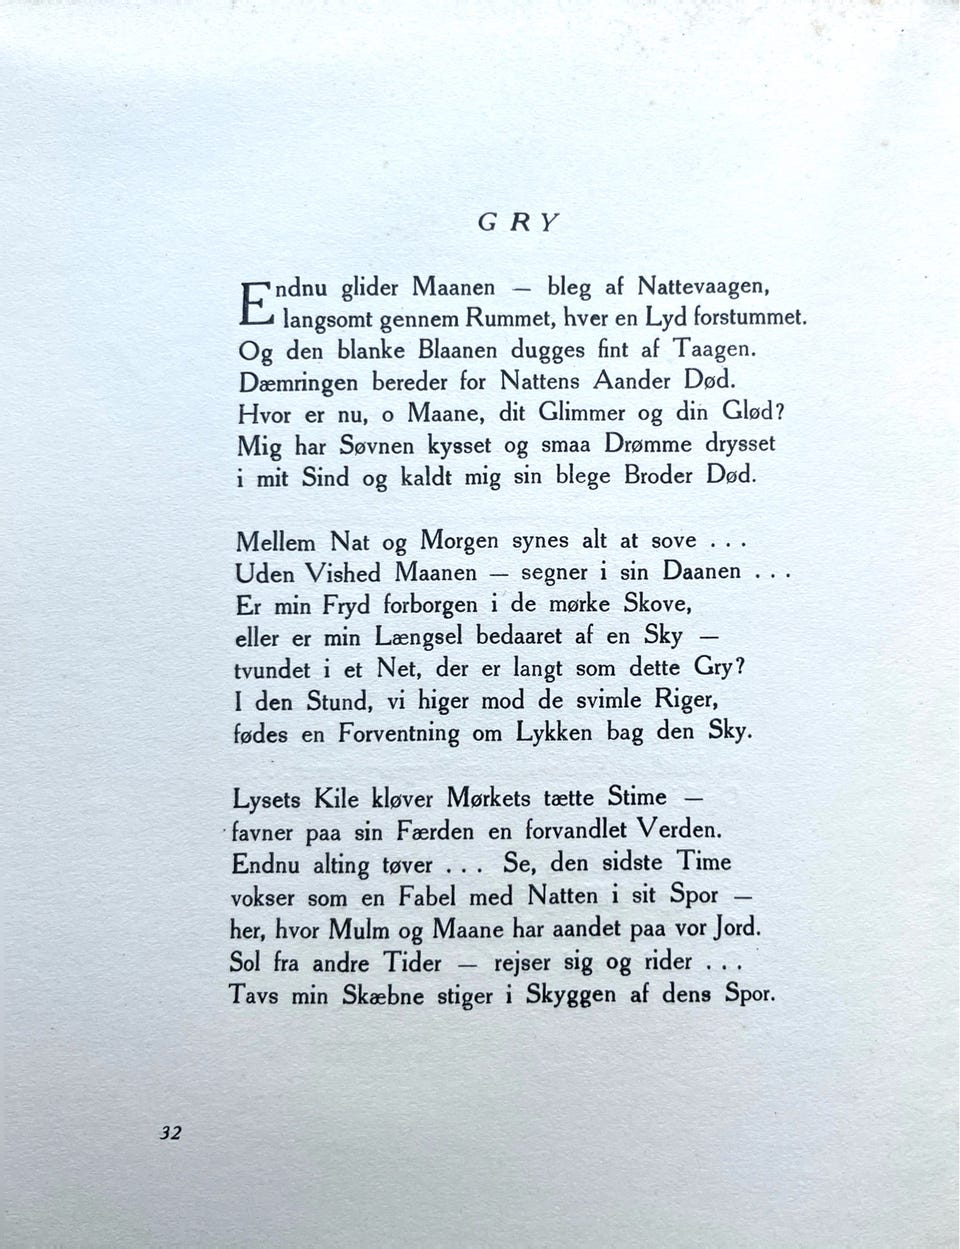 GRY
Endnu glider Maanen — bleg af Nattevaagen,
langsomt gennem Rummet, hver en Lyd forstummet.
Og den blanke Blaanen dugges fint af Taagen.
Dæmringen bereder for Nattens Aander Død.
Hvor er nu, o Maane, dit Glimmer og din Glød?
Mig har Søvnen kysset og smaa Drømme drysset
i mit Sind og kaldt mig sin blege Broder Død.
Mellem Nat og Morgen synes alt at sove . . .
Uden Vished Maanen — segner i sin Daanen . . .
Er min Fryd forborgen i de mørke Skove,
eller er min Længsel bedaaret af en Sky —
tvundet i et Net, der er langt som dette Gry?
I den Stund, vi higer mod de svimle Riger,
fødes en Forventning om Lykken bag den Sky.
Lysets Kile kløver Mørkets tætte Stime —
favner paa sin Færden en forvandlet Verden.
Endnu alting tøver . . . Se, den sidste Time
vokser som en Fabel med Natten i sit Spor —
her, hvor Mulm og Maane har aandet paa vor Jord.
Sol fra andre Tider — rejser sig og rider . . .
Tavs min Skæbne stiger i Skyggen af dens Spor.
32